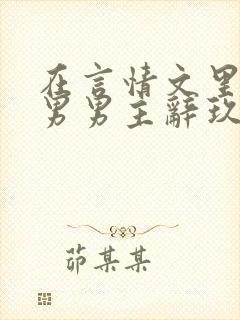 在言情文里
男男主辭玖
茆某某